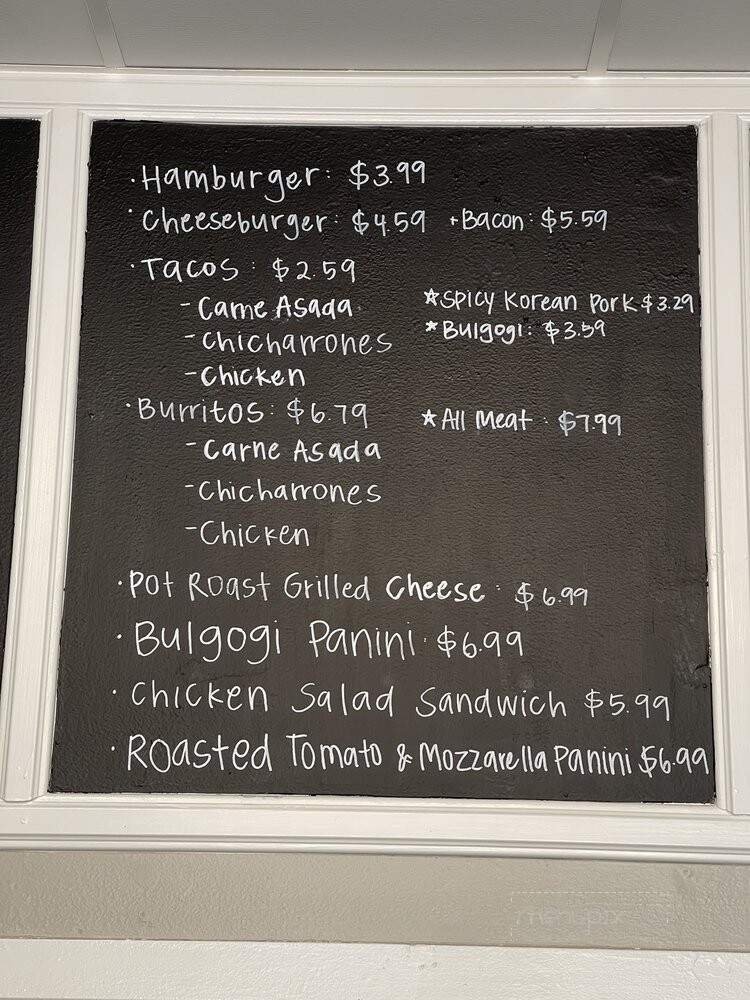 · Hamburger: $3.99
· Cheeseburger: $4.59 + Bacon: $5.59
· Tacos: $2.59
- Carne Asada ★ Spicy Korean Pork $3.29
- Chicharrones ★ Bulgogi: $3.59
- Chicken
· Burritos: $6.79 ★ All Meat: $7.99
- Carne Asada
- Chicharrones
- Chicken
· Pot Roast Grilled Cheese: $6.99
· Bulgogi Panini: $6.99
· Chicken Salad Sandwich $5.99
· Roasted Tomato & Mozzarella Panini $6.99
menupix